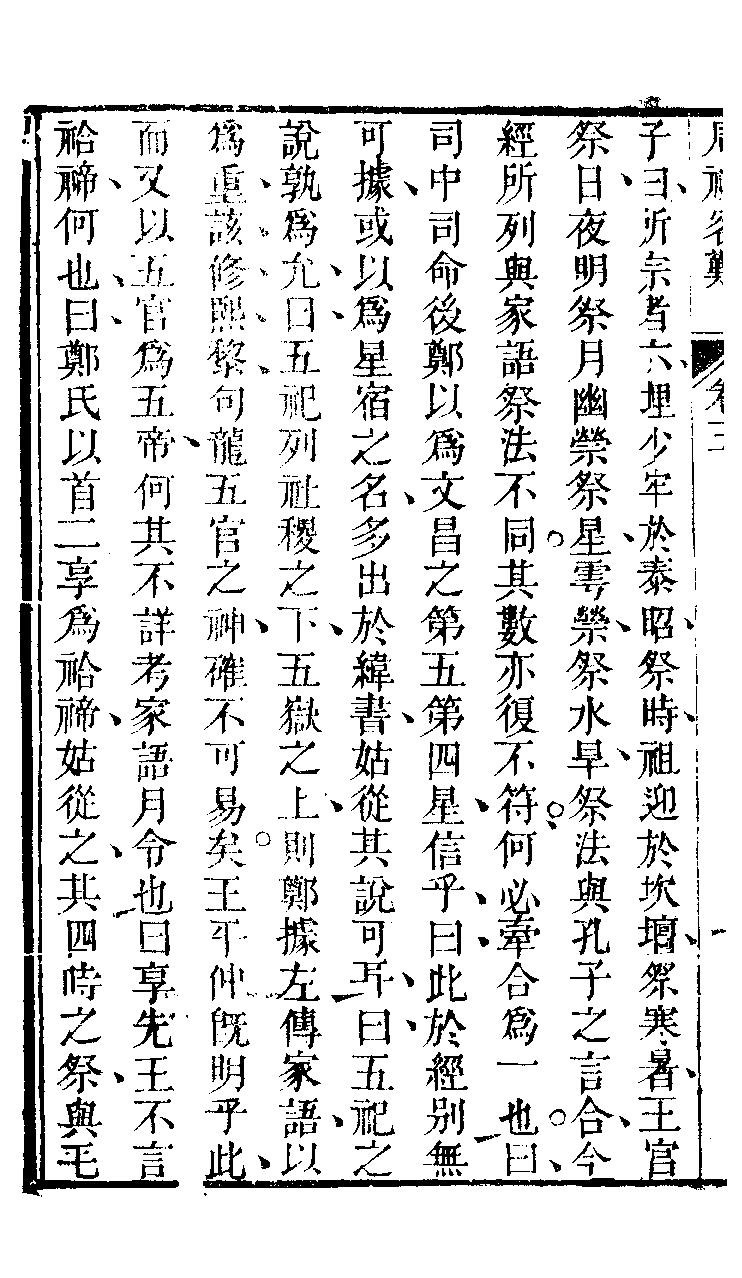 周禮客難 卷二
子曰所宗者六埋少牢於泰昭祭時祖迎於坎壇祭寒暑王宮
祭日夜明祭月幽禜祭星雩禜祭水旱祭法與孔子之言合今
經所列與家語祭法不同其數亦復不符何必牽合爲一也曰
司中司命後鄭以爲文昌之第五第四星信乎曰此於經別無
可據或以爲星宿之名多出於緯書姑從其說可耳曰五祀之
說孰爲允曰五祀列社稷之下五嶽之上則鄭據左傳家語以
爲重該修熙黎句龍五官之神確不可易矣王平仲旣明乎此
而又以五官爲五帝何其不詳考家語月令也曰享先王不言
祫禘何也曰鄭氏以首二享爲祫禘姑從之其四時之祭與毛